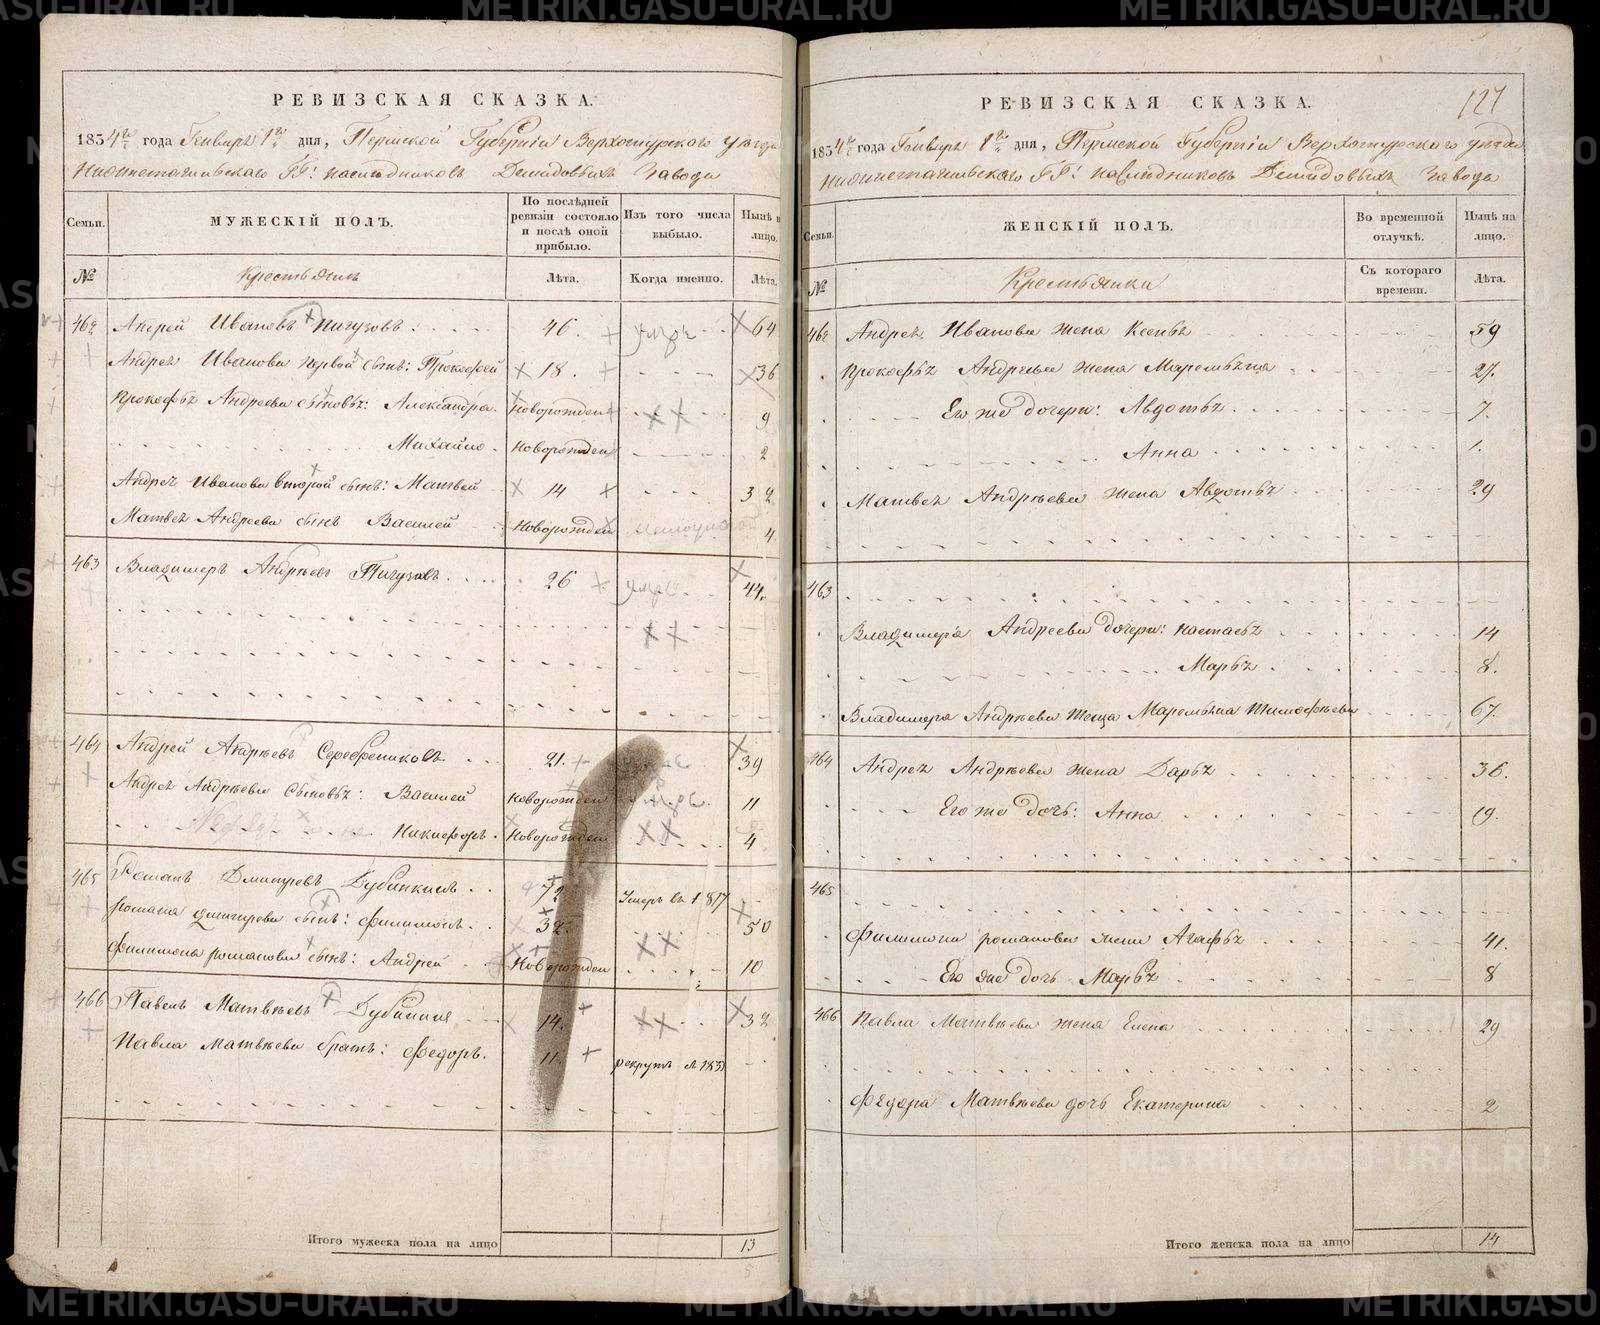 РЕВИЗСКАЯ СКАЗКА.
1834го года Генваря 1го дня, Пермской Губернiи Верхотурского уезда
Нижнетагильскаго ГГ: наследниковъ Демидовыхъ Завода
Семьи.
МУЖЕСКIЙ ПОЛЪ.
По послѣдней ревизiи состояло и послѣ оной прибыло.
Изъ того числа выбыло.
Нынѣ на лицо.
№
Крестьянъ
Лѣта.
Когда именно.
Лѣта.
462 Андрей Ивановъ Пичуговъ 46. умре 64
Андрея Иванова первой сынъ: Прокофей 18. 36
Прокофья Андреева сыновья: Александра. Новорожден 9
Михайло. Новорожден 2
Андрея Иванова второй сынъ: Матвей 14 32
Матвея Андреева сынъ Василей Новорожден 4.
463 Владимеръ Андреевъ Пичуговъ. 26 умре 44.
464 Андрей Андреевъ Серебрениковъ 21. 39
Андрея Андреева сыновья: Василей Новорожден умре 11
Никифоръ. Новорожден 4
465 Романъ Дмитревъ Дубинкинъ 72 Умеръ въ 1817
Романа Дмитрева сынъ: Филимонъ. 32 50
Филимона Романова сынъ: Андрей Новорожден 10
466 Павелъ Матвеевъ Дубинкин 14. 32
Павла Матвеева братъ: Федоръ. 11. рекрутъ в 1831
Итого мужеска пола на лицо 13
127
РЕВИЗСКАЯ СКАЗКА.
1834го года Генваря 1го дня, Пермской Губернiи Верхотурского уезда
Нижнетагильскаго ГГ: наследниковъ Демидовыхъ Завода
Семьи.
ЖЕНСКIЙ ПОЛЪ.
Во временной отлучкѣ.
Нынѣ на лицо.
№
Крестьянки
Съ котораго времени.
Лѣта.
462 Андрея Иванова жена Ксенья 59
Прокофья Андреева жена Маремьяна 27.
Его же дочери: Авдотья 7.
Анна 1.
Матвея Андреева жена Авдотья 29
463
Владимера Андреева дочери: Настасья 14
Марья 8.
Владимера Андреева теща Маремьяна Тимофеева 67.
464 Андрея Андреева жена Дарья 36.
Его же дочь: Анна 19.
465
Филимона Романова жена Агафья 41.
Его же дочь Марья 8
466 Павла Матвеева жена Елена 29
Федора Матвеева дочь Екатерина 2
Итого женска пола на лицо 14
METRIKI.GASO-URAL.RU